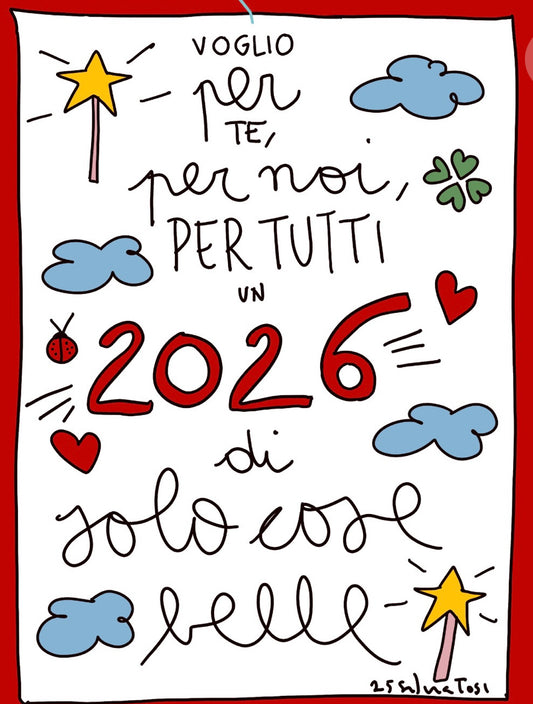 VOGLIO
per
TE,
per noi,
PER TUTTI
UN
2026
di
solo cose
belle
25 Silvia Tosi